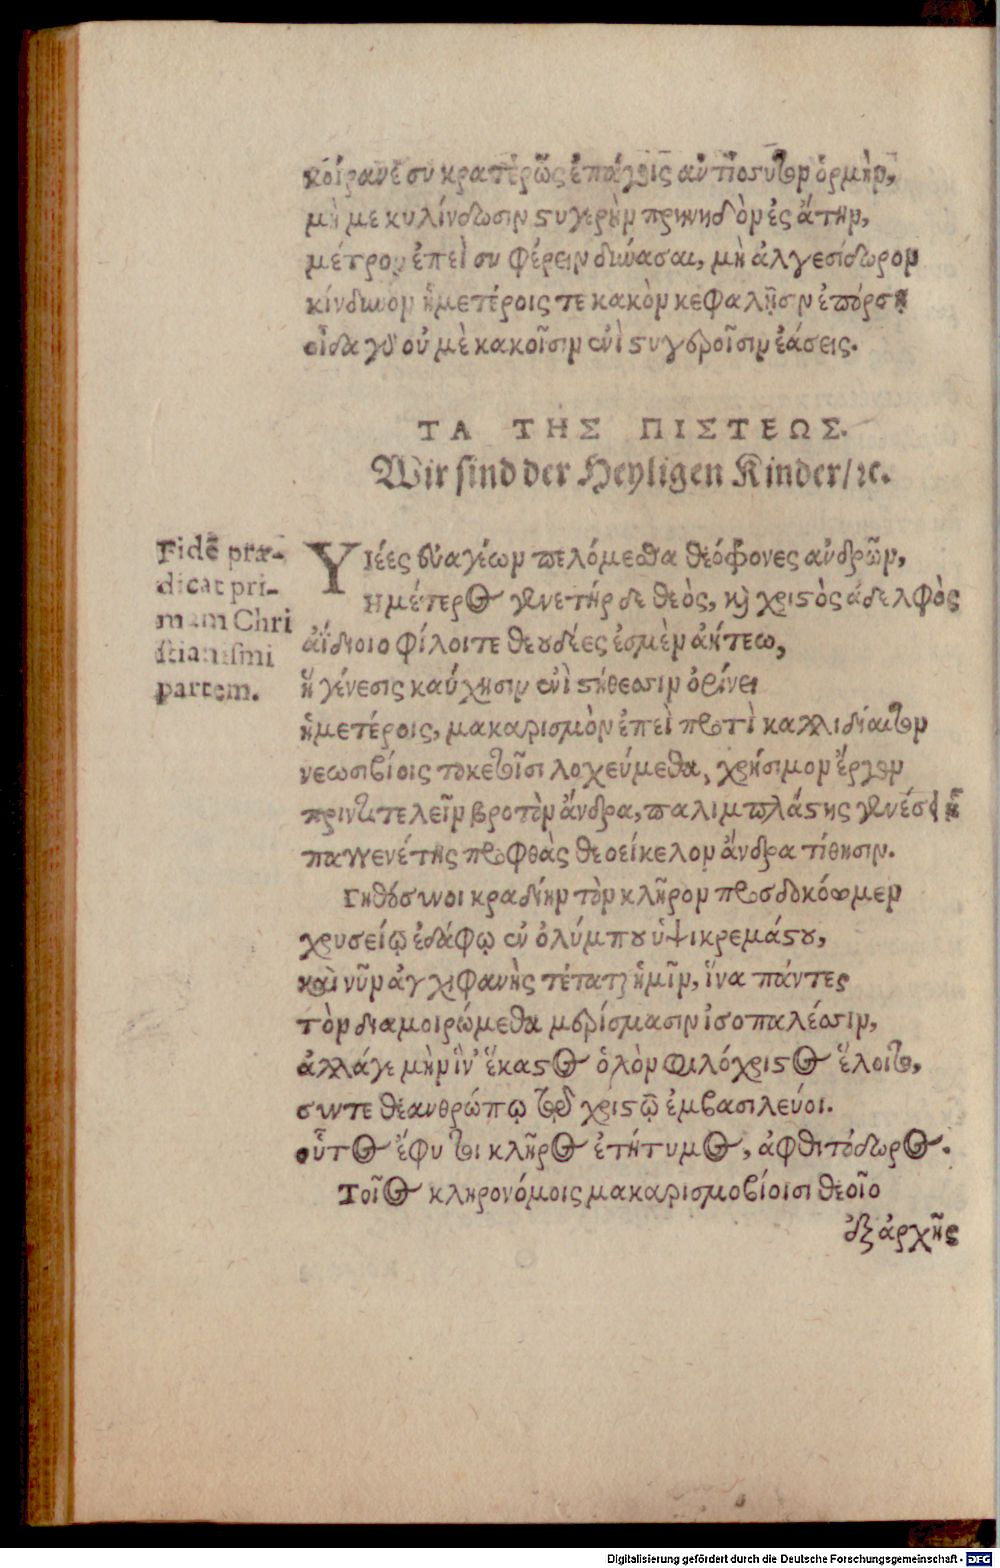 κοίρανε συ κρατερῶς ἐπάγεις ἀντίος των ὁρμὴν,
μή με κυλίνδωσιν στυγερὴν πρηνηδὸν ἐς ἄτην,
μέτρον ἐπεὶ συ φέρειν δύνασαι, μὴ ἀλγεσίδωρον
κίνδυνον ἡμετέροις τε κακὸν κεφαλῇσιν ἐπόρσῃ
οἶδα γὸ οὐ μὲ κακοῖσιν ἐνὶ στυγεροῖσιν ἐάσεις.
ΤΑ ΤΗΣ ΠΙΣΤΕΩΣ.
Wir sind der Heyligen Kinder/ꝛc.
Fidē præ-
dicat pri-
mam Chri
stianismi
partem.
Υἱέες εὐαγέων πελόμεσθα θεόφρονες ἀνδρῶν,
Ημέτερος γενετήρ δε θεὸς, καὶ χριστὸς ἀδελφὸς
ἀΐδιοιο φίλοι τε θεουδέες ἐσμὲν ἀήτεω,
ἥ γένεσις καύχησιν ἐνὶ στήθεσσιν ὀρίνει
ἡμετέροις, μακαρισμὸν ἐπεὶ προτὶ καλλιδίαιτον
νεωσιβίοις τοκετοῖσι λοχεύμεθα, χρήσιμον ἔργον
πριν τε τελεῖν βροτὸν ἄνδρα, παλιμπλάστης γενέσει
παγγενέτης προφθὰς θεοείκελον ἄνδρα τίθησιν.
Γηθόσυνοι κραδίην τὸν κλῆρον προσδοκόωμεν
χρυσείῳ ἐδάφῳ ἐν ὀλύμπου ὑψικρεμάστου,
καὶ νῦν ἀγχιφανὴς τέταται ἡμῖν, ἵνα πάντες
τὸν διαμοιρώμεθα μερίσμασιν ἰσοπαλέσσιν,
ἀλλάγε μὴν ἵν' ἕκαστος ὁλὸν φιλόχριστος ἕλοιτο,
συν τε θεανθρώπῳ τῷ χριστῷ ἐμβασιλεύοι.
οὗτος ἔφυ τοι κλῆρος ἐτήτυμος, ἀφθιτόδωρος.
Τοῖος κληρονόμοις μακαρισμοβίοισι θεοῖο
ἐξ ἀρχῆς
Digitalisierung gefördert durch die Deutsche Forschungsgemeinschaft - DFG